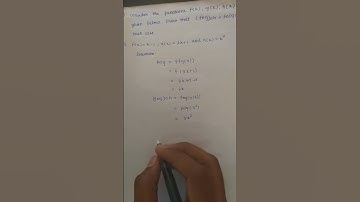 Consider the functions f(x), g(x), h(x)
given below. Show that (fog)oh = fo(goh)
that case.
f(x) = x-1, g(x) = 3x+1 and h(x) = x²
fog = f(g(x))
= f(3x+1)
= 3x+1-1
= 3x
(fog)oh = fog(h(x))
= fog(x²)
= 3x²